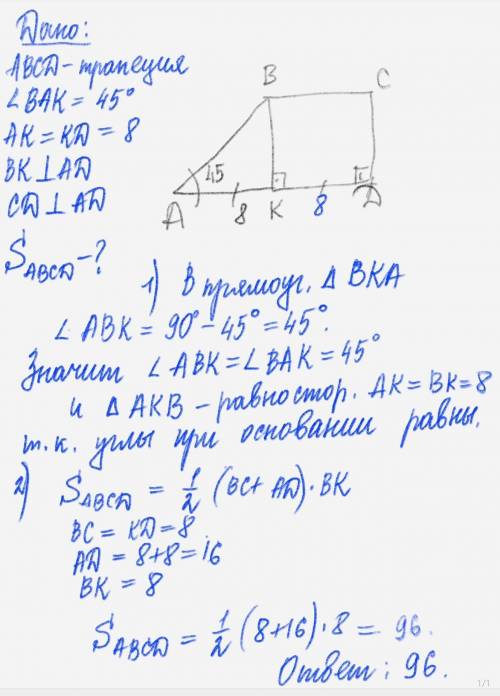 Дано:
ABCD - трапеция
∠BAK = 45°
AK = KD = 8
BK ⊥ AD
CD ⊥ AD
S ABCD - ?
B C
45
A 8 K 8 D
1) В прямоуг. Δ BKA
∠ ABK = 90° - 45° = 45°.
Значит ∠ ABK = ∠ BAK = 45°
и Δ AKB - равностор. AK = BK = 8
т.к. углы при основании равны.
2) S ABCD = 1/2 (BC + AD) · BK
BC = KD = 8
AD = 8+8 = 16
BK = 8
S ABCD = 1/2 (8+16) · 8 = 96.
Ответ: 96.
1/1